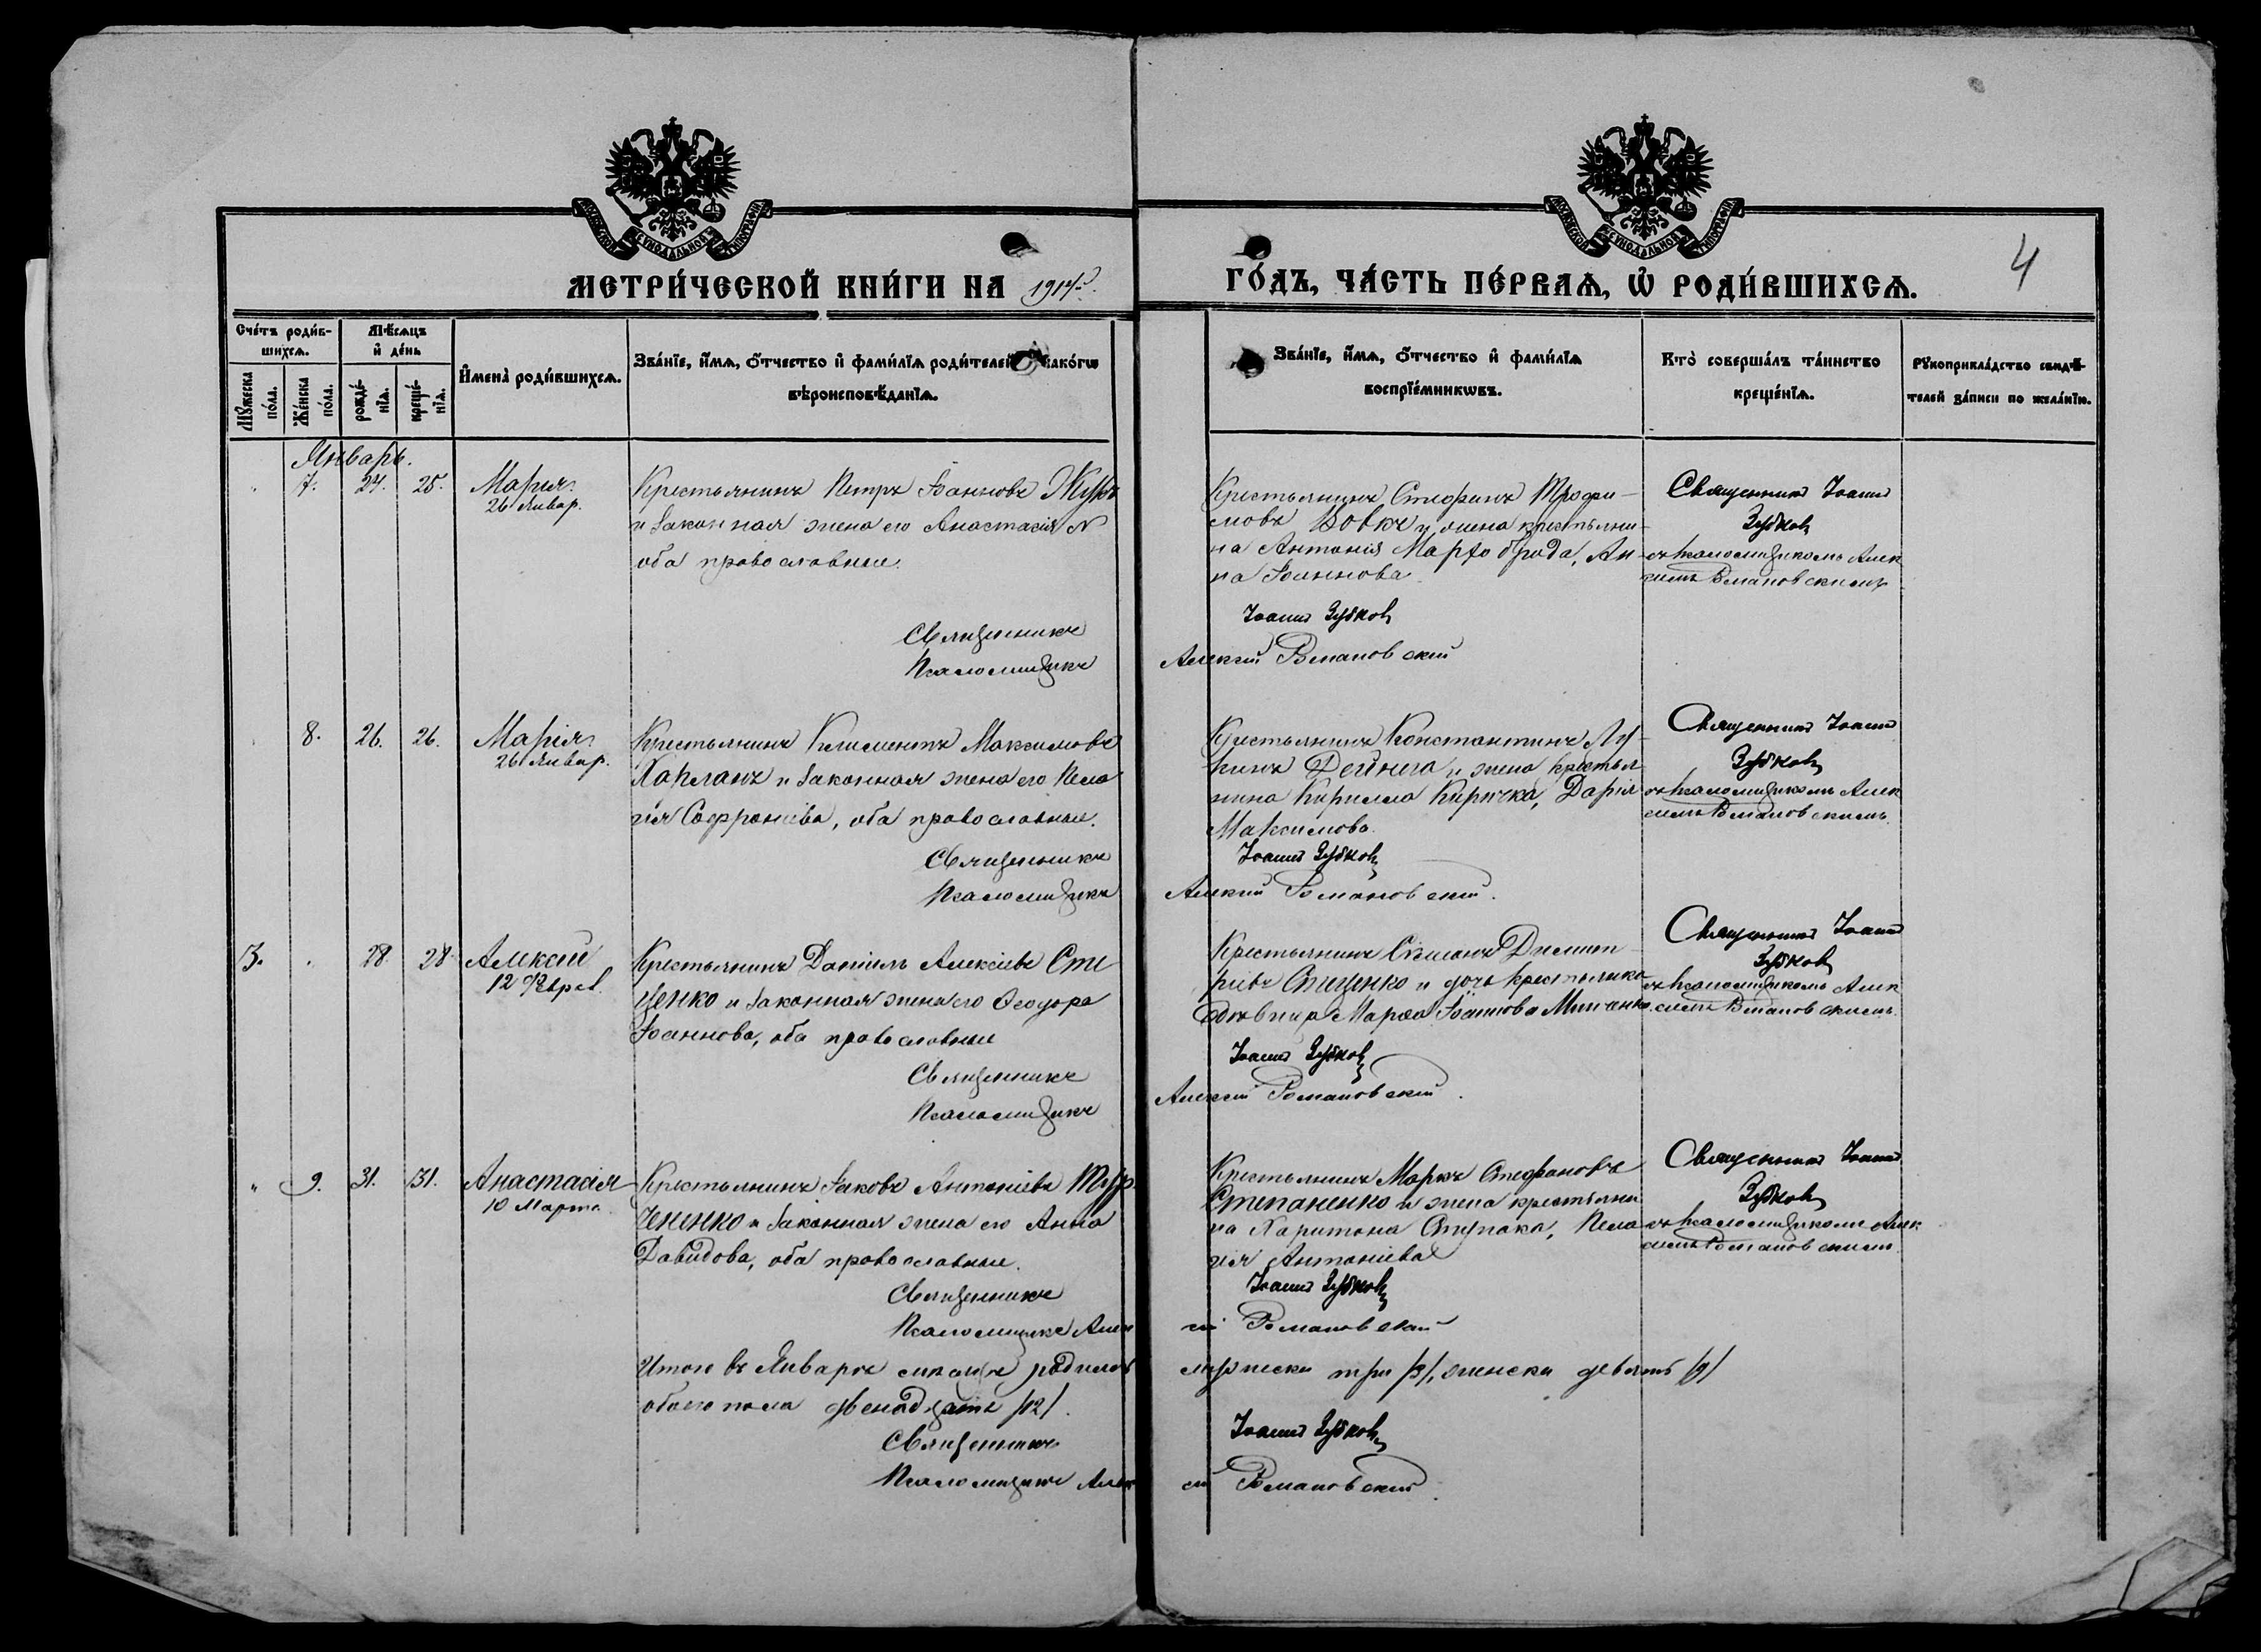 4
МЕТРИ́ЧЕСКОЙ КНИ́ГИ НА 1914
ГО́ДЪ, ЧА́СТЬ ПЕ́РВАЯ, Ѡ҆ РОДИ́ВШИХСЯ.
Сче́тъ роди́в-
шихся.
Му́жеска по́ла.
Же́нска по́ла.
Мѣ́сяцъ
и҆ де́нь
рожде́-
нїя.
креще́-
нїя.
И҆мена̀ роди́вшихся.
Зва́нїе, и҆́мя, ѻ҆́тчество и҆ фами́лїя роди́телей како́гѡ
вѣроисповѣ́данїя.
Зва́нїе, и҆́мя, ѻ҆́тчество и҆ фами́лїя
воспрїе́мникѡвъ.
Кто̀ соверша́лъ та́инство
креще́нїя.
Рꙋкоприкла́дство свидѣ́-
телей за́писи по жела́нїю.
Январь.
7. 24. 25.
Мария
26 Январ.
Крестьянинъ Петръ Іоанновъ
и законная жена его Анастасія
оба православные.
Священникъ
Псаломщикъ
Крестьянинъ Стефанъ Трофи-
мовъ Вовкъ и жена крестьяни-
на Антонія Ан-
на Іоаннова
Іоаннъ Зубков
Алексій Романовскій
Священникъ Іоаннъ
Зубков
съ псаломщикомъ Алек
сіемъ Романовскимъ
8. 26. 26.
Марія
26 Январ.
Крестьянинъ Климентъ Максимовъ
Капланъ и законная жена его Пела
гія Софроніева, оба православные.
Священникъ
Псаломщикъ
Крестьянинъ Константинъ Лу-
кинъ Дейнега и жена крестья
нина Кирилла Киричка, Дарія
Максимова.
Іоаннъ Зубков
Алексій Романовскій.
Священникъ Іоаннъ
Зубков
съ псаломщикомъ Алек
сіемъ Романовскимъ.
3. 28 28
Алексій
12 Феврал.
Крестьянинъ Даніилъ Алексіевъ Сте
ценко и законная жена его Ѳеодора
Іоаннова, оба православные
Священникъ
Псаломщикъ
Крестьянинъ Димит-
ріевъ Стеценко и дочь крестьянина
Марѳа Іоаннова
Іоаннъ Зубков
Алексій Романовскій.
Священникъ Іоаннъ
Зубков
съ псаломщикомъ Алек
сіемъ Романовскимъ.
9. 31. 31.
Анастасія
10 Марта.
Крестьянинъ Іаковъ Антоніевъ Тур
чененко и законная жена его Анна
Давидова, оба православные.
Священникъ
Псаломщикъ Алек
Крестьянинъ Маркъ Стефановъ
Степаненко и жена крестьяни
на Харитона Ступака, Пела
гія Антоніева
Іоаннъ Зубков
сій Романовскій
Священникъ Іоаннъ
Зубков
съ псаломщикомъ Алек
сіемъ Романовскимъ.
Итого въ Январѣ мѣсяцѣ родилось
мужеска три /3/, женска девять /9/
обоего пола двенадцать /12/.
Священникъ
Іоаннъ Зубков
Псаломщикъ Алек
сій Романовскій.